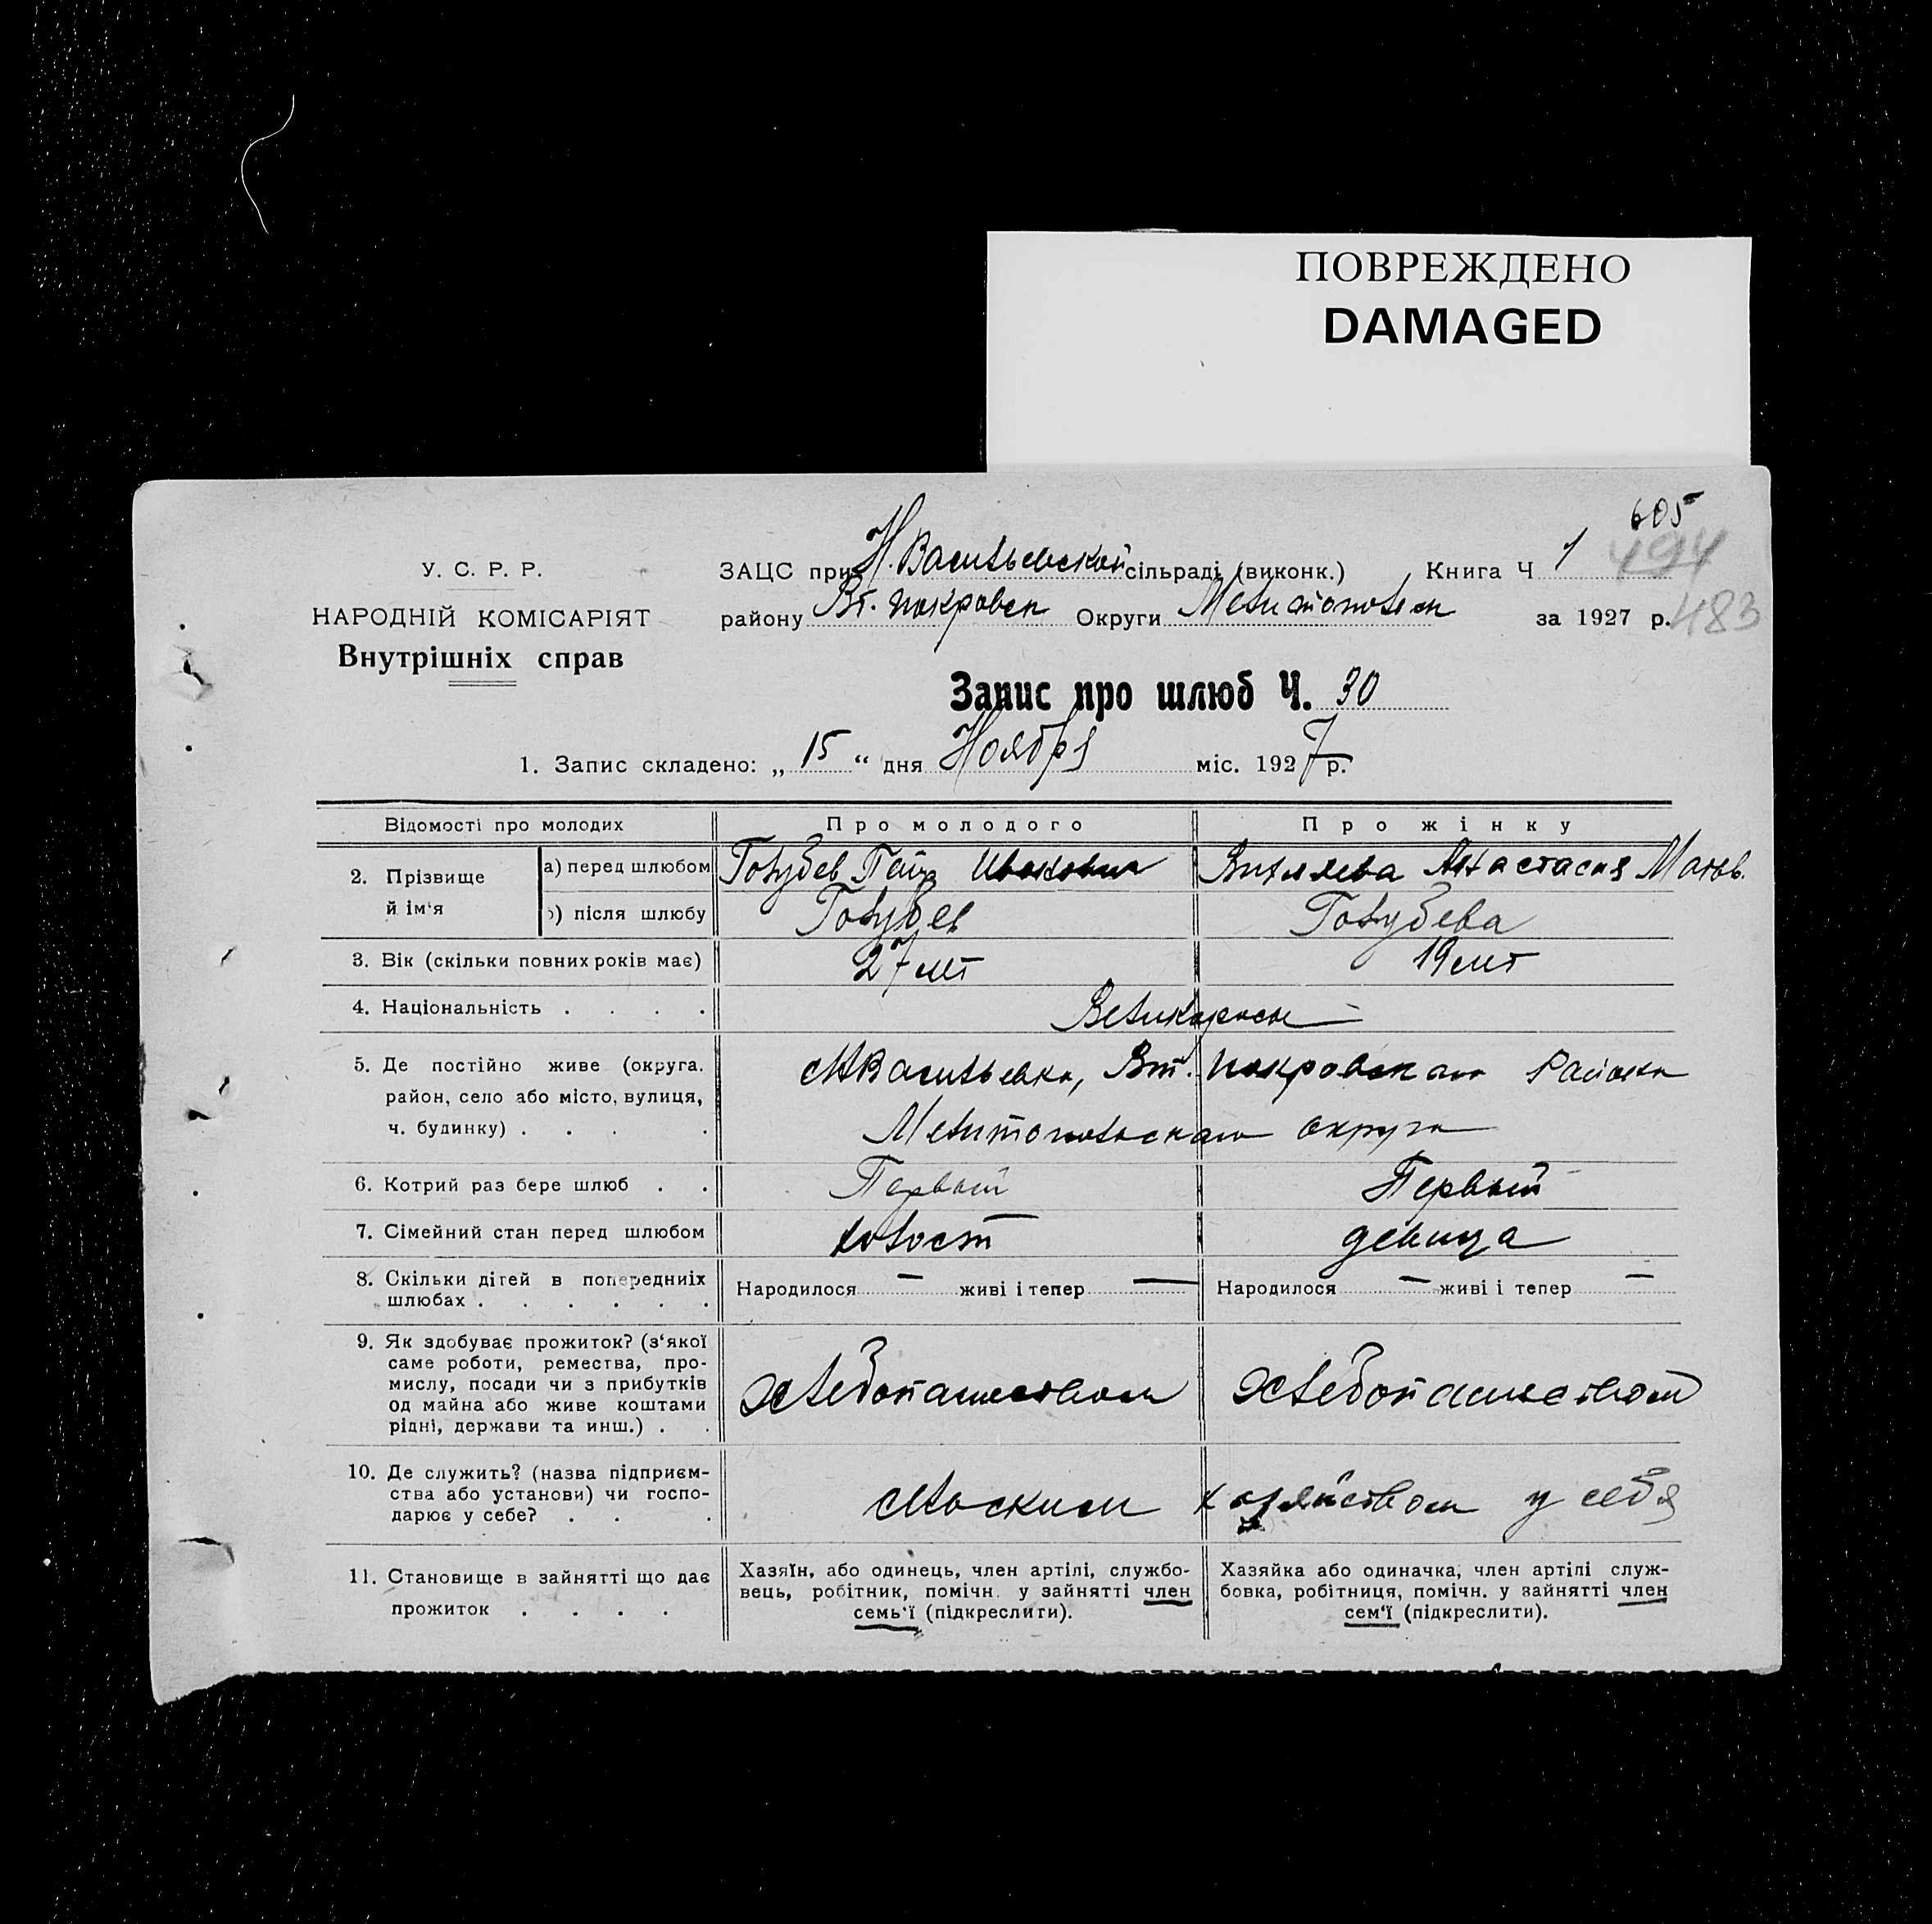 ПОВРЕЖДЕНО
DAMAGED
605
У. С. Р. Р.
НАРОДНІЙ КОМІСАРІЯТ
Внутрішніх справ
ЗАЦС при Н. Васильевской сільраді (виконк.) Книга Ч 1 494
району Вт. покровск Округи Мелитопольск за 1927 р. 483
Запис про шлюб Ч. 30
1. Запис складено: „ 15 “ дня Ноября міс. 1927 р.
Відомості про молодих Про молодого Про жінку
2. Прізвище й ім‘я а) перед шлюбом Голубев Петр Иванович Анастасия Матв.
б) після шлюбу Голубев Голубева
3. Вік (скільки повних років має) 27 лет 19 лет
4. Національність . . . . Великороссы
5. Де постійно живе (округа,
район, село або місто, вулиця,
ч. будинку) . . . .
Н Васильевка, Вт. покровского Района
Мелитопольского округа
6. Котрий раз бере шлюб . . Первый Первый
7. Сімейний стан перед шлюбом холост девица
8. Скільки дітей в попередниіх
шлюбах . . . . . .
Народилося — живі і тепер — Народилося — живі і тепер —
9. Як здобуває прожиток? (з‘якої
саме роботи, ремества, про-
мислу, посади чи з прибутків
од майна або живе коштами
рідні, держави та инш.) . .
хлебопашеством хлебопашеством
10. Де служить? (назва підприєм-
ства або установи) чи госпо-
дарює у себе? . . .
хозяйством у себя
11. Становище в зайнятті що дає
прожиток . . . .
Хазяїн, або одинець, член артілі, службо-
вець, робітник, помічн. у зайнятті член
семь‘ї (підкреслити).
Хазяйка або одиначка, член артілі служ-
бовка, робітниця, помічн. у зайнятті член
сем‘ї (підкреслити).